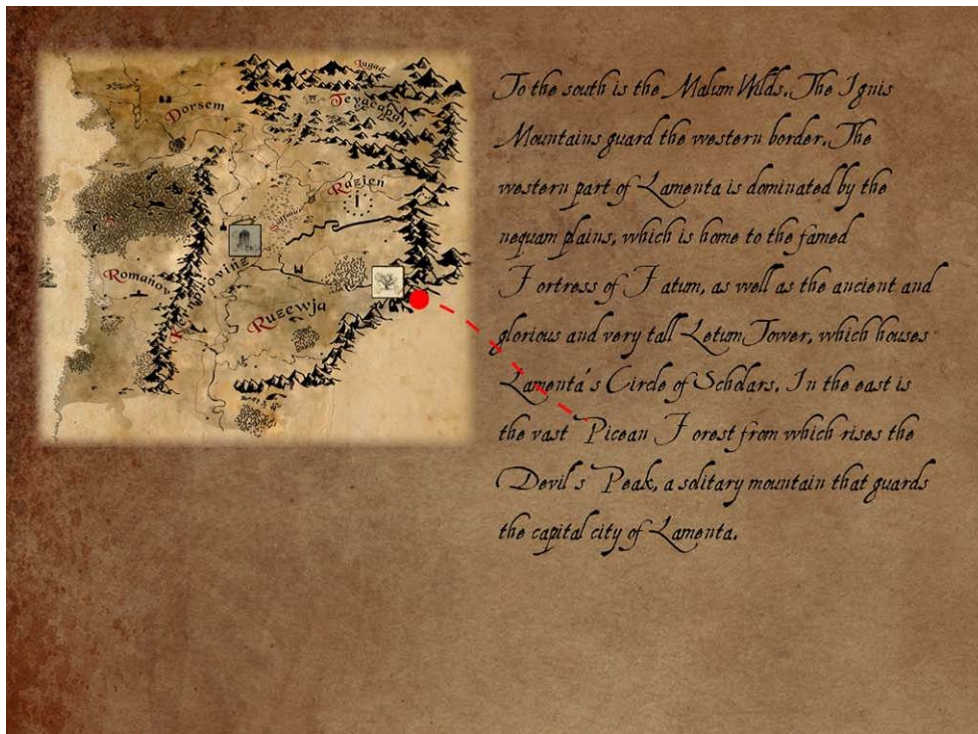 Lugad
Teygearan
Dorsem
Razien
Romanov
Ruzewja
To the south is the Malum Wilds. The Ignis
Mountains guard the western border. The
western part of Lamenta is dominated by the
nequam plains, which is home to the famed
Fortress of Fatum, as well as the ancient and
glorious and very tall Letum Tower, which houses
Lamenta's Circle of Scholars. In the east is
the vast Picean Forest from which rises the
Devil's Peak, a solitary mountain that guards
the capital city of Lamenta.